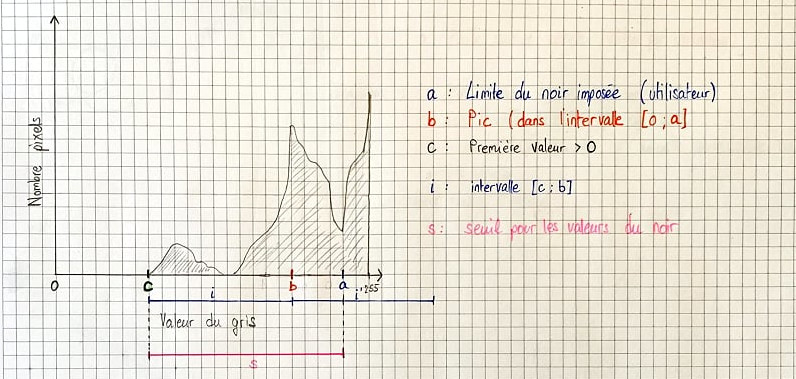 Nombre pixels
a : Limite du noir imposée (utilisateur)
b : Pic (dans l'intervalle [0 ; a]
c : Première valeur > 0
i : intervalle [c ; b]
s : seuil pour les valeurs du noir
0 c i b a i' 255
Valeur du gris
s